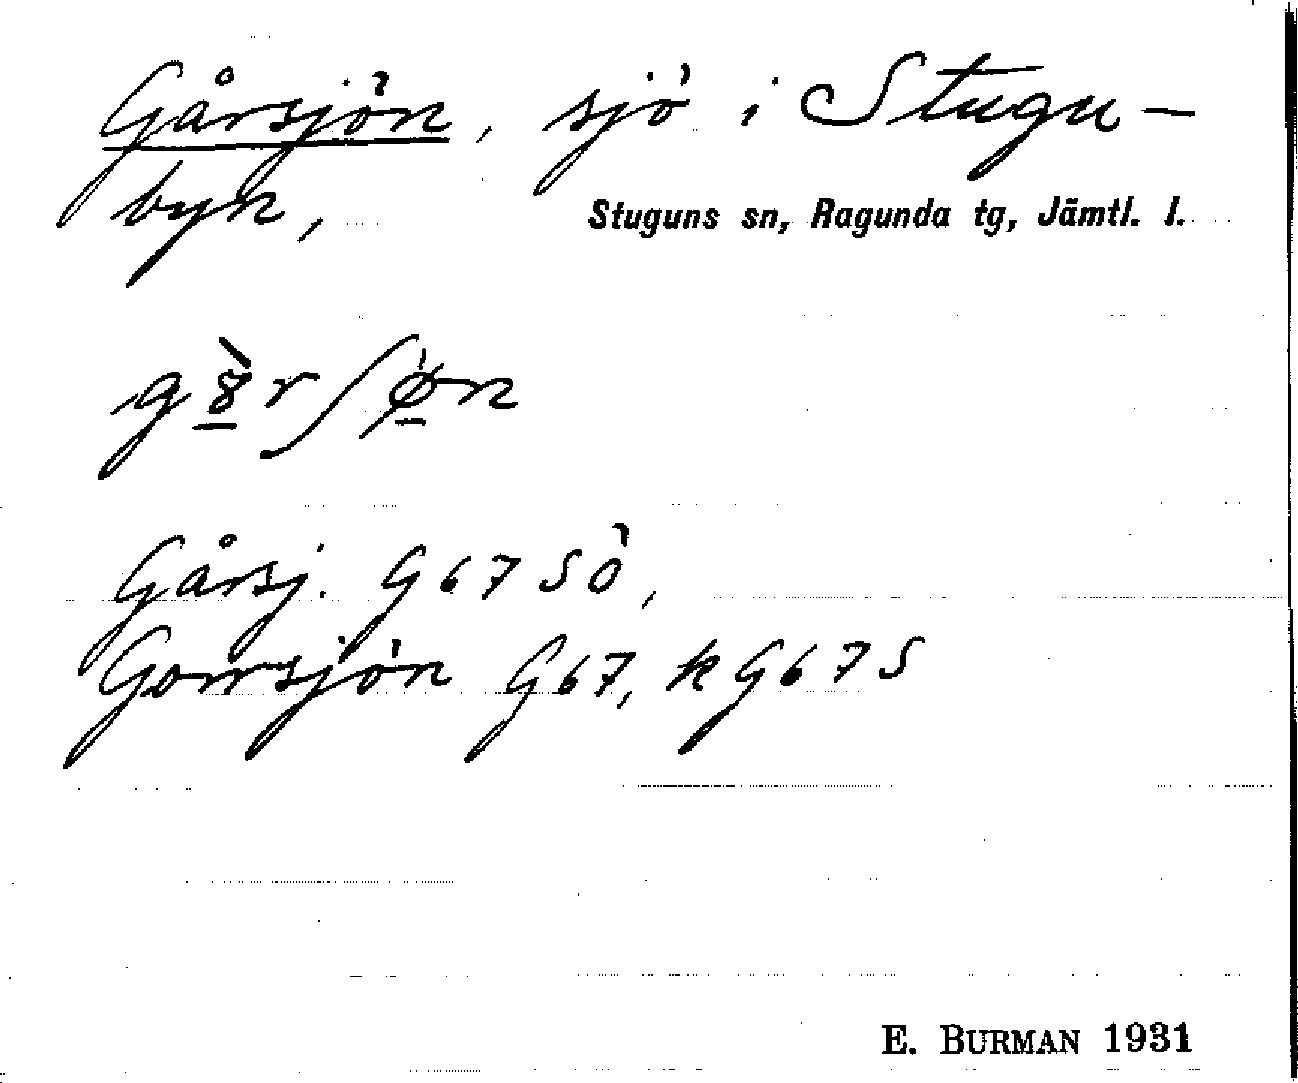 Gårsjön, sjö i Stugu-
byn,
Stuguns sn, Ragunda tg, Jämtl. l.
g8̲̀rʃø̲̍n
Gårsj. G67SÖ,
Gorrsjön G67, kG67S
E. BURMAN 1931